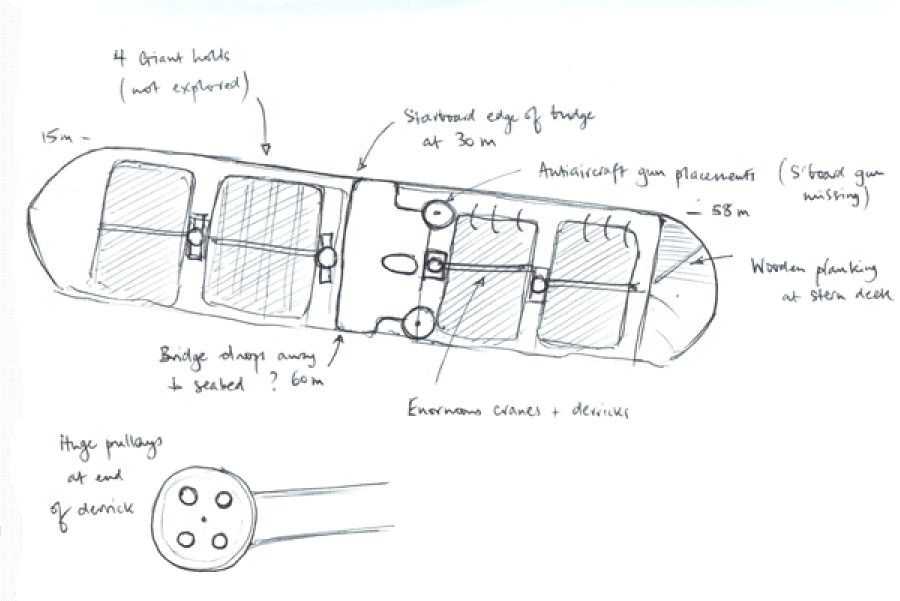 4 Giant holds
(not explored)
15m -
Starboard edge of bridge
at 30 m
Antiaircraft gun placements (S'board gun
missing)
- 58 m
Wooden planking
at stern deck
Bridge drops away
to seabed ? 60m
Enormous cranes + derricks
Huge pulleys
at end
of derrick